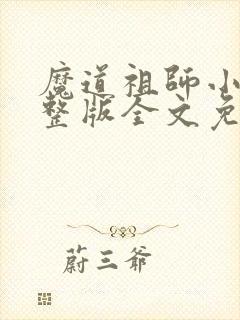 魔道祖師小
整版全文免
蔚三爷